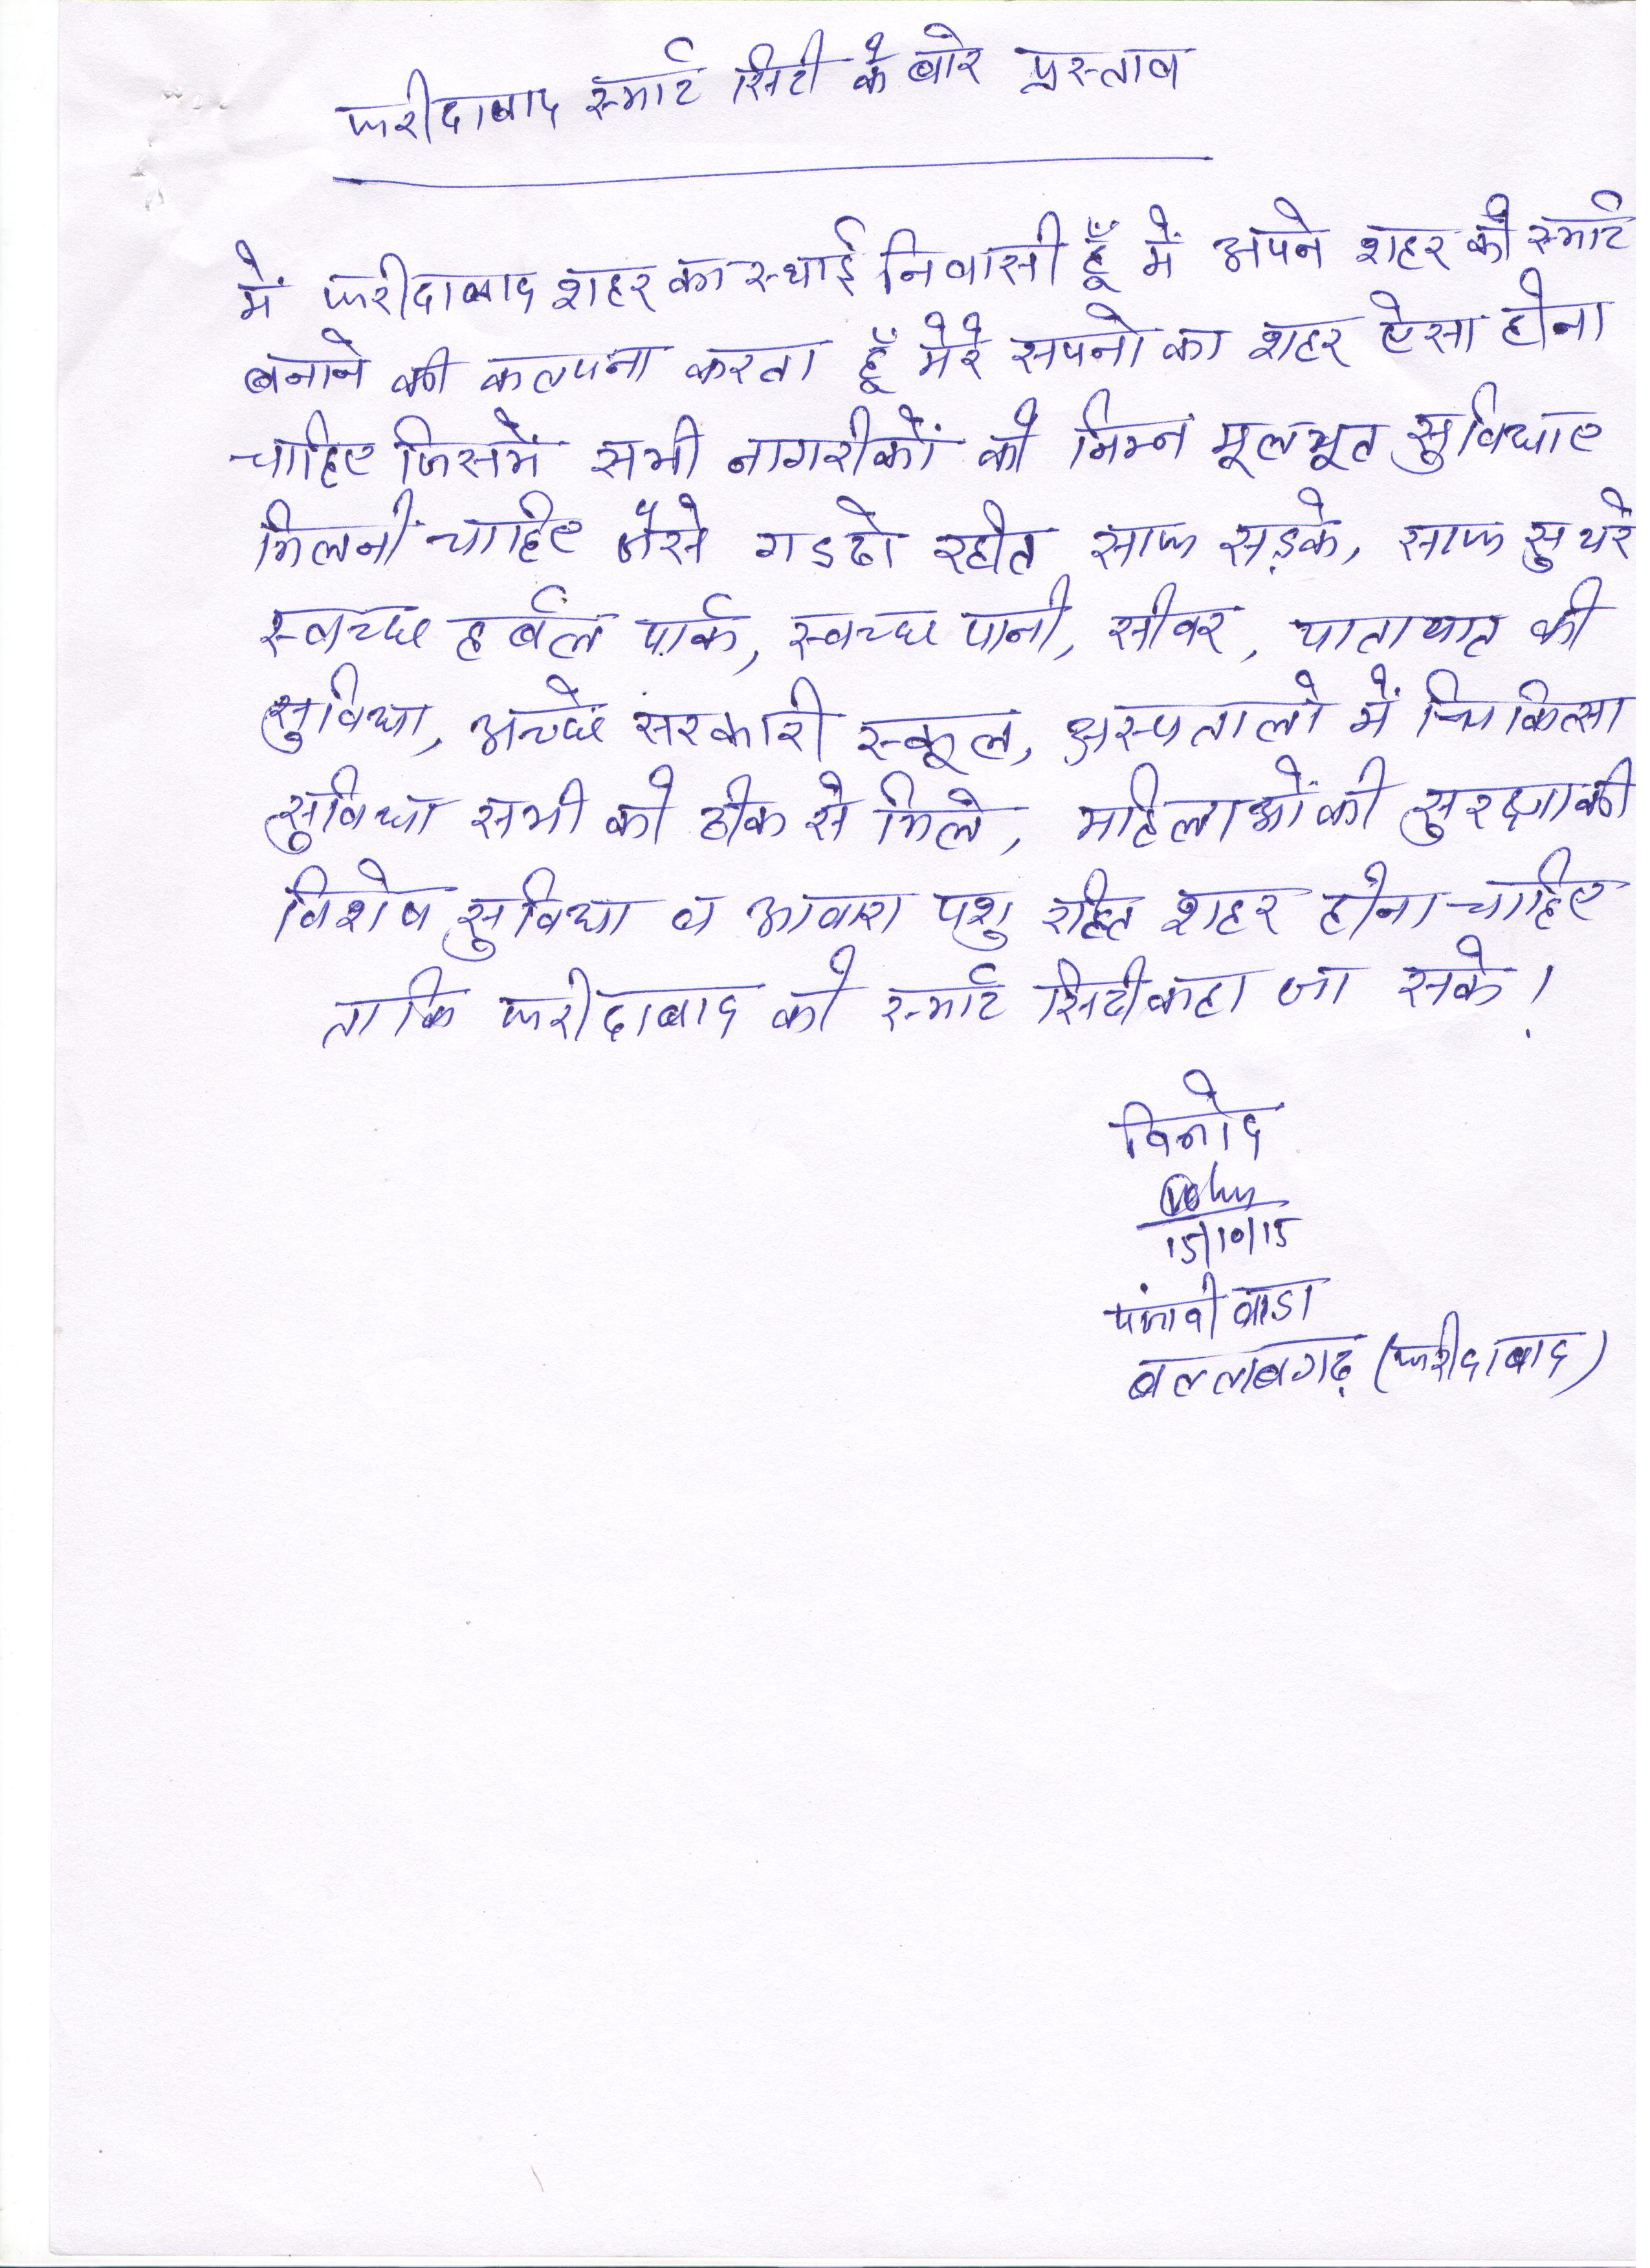 फरीदाबाद स्मार्ट सिटी के बारे प्रस्ताव
में फरीदाबाद शहर का स्थाई निवासी हूँ में अपने शहर को स्मार्ट
बनाने की कल्पना करता हूँ मेरे सपनो का शहर ऐसा होना
चाहिए जिसमें सभी नागरीकों को निम्न मूलभूत सुविधाए
मिलनी चाहिए जैसे गडढो रहीत साफ सड़के, साफ सुथरे
स्वच्छ हर्बल पार्क, स्वच्छ पानी, सीवर, यातायात की
सुविधा, अच्छे सरकारी स्कूल, अस्पतालो में चिकित्सा
सुविधा सभी को ठीक से मिले, महिलाओं की सुरक्षा की
विशेष सुविधा व आवारा पशु रहित शहर होना चाहिए
ताकि फरीदाबाद को स्मार्ट सिटी कहा जा सके।
विनोद
15/10/15
पंजाबी वाडा
बल्लाबगढ़ (फरीदाबाद)